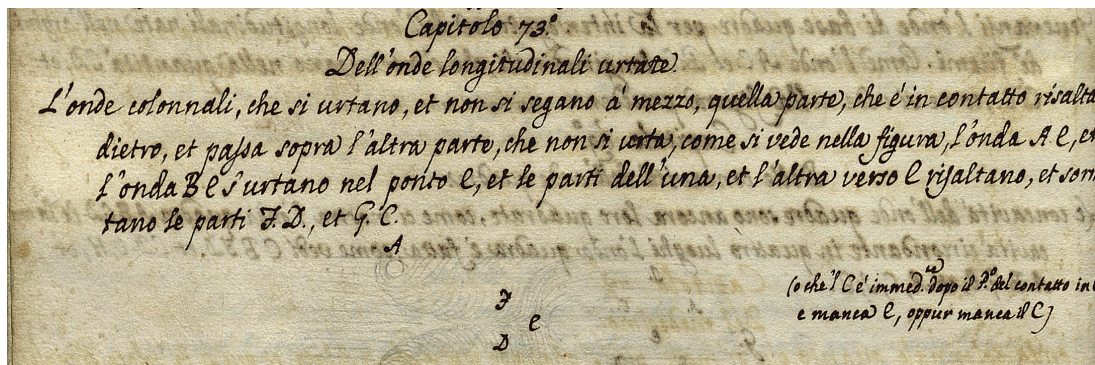 Capitolo 73.º
Dell'onde longitudinali urtate.
L'onde colonnali, che si urtano, et non si segano á mezzo, quella parte, che é in contatto risalta
dietro, et passa sopra l'altra parte, che non si urta, come si vede nella figura, l'onda A e, et
l'onda B e s'urtano nel ponto e, et le parti dell'una, et l'altra verso e risaltano, et sorm
tano le parti F. D., et G. C.
A
F
e
D
(o che'l C é immed.te dopo il P.º del contatto in
e manca e, oppur manca il C)